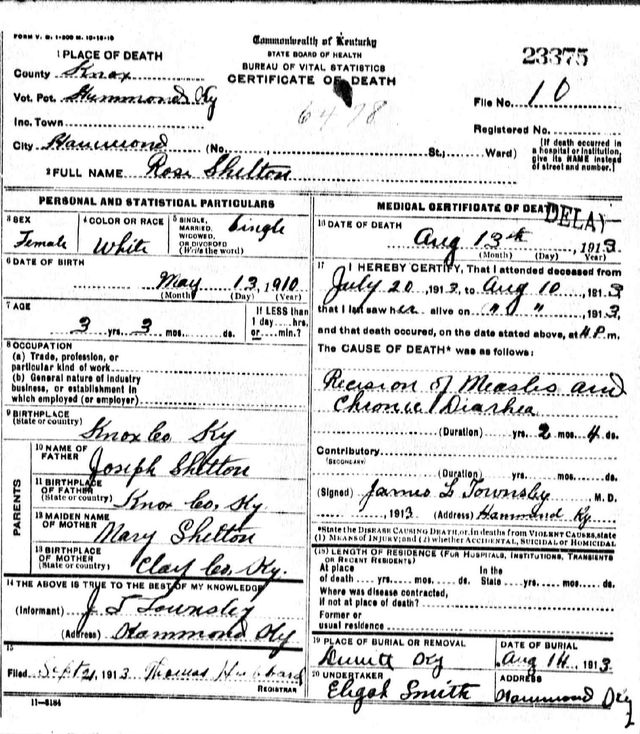 FORM V. S. 1-500 M. 10-15-10
Commonwealth of Kentucky
STATE BOARD OF HEALTH
BUREAU OF VITAL STATISTICS
CERTIFICATE OF DEATH
23375
1 PLACE OF DEATH
County Knox
Vot. Pct. Hammond Ky
Inc. Town
City Hammond (No. St.; Ward)
6478
File No. 10
Registered No.
(If death occurred in a hospital or institution, give its NAME instead of street and number.)
2 FULL NAME Rose Shelton
PERSONAL AND STATISTICAL PARTICULARS
3 SEX Female
4 COLOR OR RACE White
5 SINGLE, MARRIED, WIDOWED, OR DIVORCED (Write the word) Single
6 DATE OF BIRTH May 13, 1910
(Month) (Day) (Year)
7 AGE 3 yrs. 3 mos. ds.
If LESS than 1 day....hrs. or....min.?
8 OCCUPATION
(a) Trade, profession, or particular kind of work
(b) General nature of industry business, or establishment in which employed (or employer)
9 BIRTHPLACE (State or country) Knox Co. Ky
PARENTS
10 NAME OF FATHER Joseph Shelton
11 BIRTHPLACE OF FATHER (State or country) Knox Co. Ky
12 MAIDEN NAME OF MOTHER Mary Shelton
13 BIRTHPLACE OF MOTHER (State or country) Clay Co. Ky.
14 THE ABOVE IS TRUE TO THE BEST OF MY KNOWLEDGE
(Informant) J L Townsley
(Address) Hammond Ky
15
Filed Sept 2, 1913 Thomas Hubbard
REGISTRAR
11-5184
MEDICAL CERTIFICATE OF DEATH
DELAY
16 DATE OF DEATH Aug 13th, 1913
(Month) (Day) (Year)
17 I HEREBY CERTIFY, That I attended deceased from
July 20, 1913, to Aug 10, 1913
that I last saw her alive on " " ", 1913,
and that death occured, on the date stated above, at 4 P.m.
The CAUSE OF DEATH* was as follows:
Recision of Measles and
Chronic Diarhea
(Duration) yrs. 2 mos. 4 ds.
Contributory
(SECONDARY)
(Duration) yrs. mos. ds.
(Signed) James L Townsley M. D.
1913 (Address) Hammond Ky.
*State the DISEASE CAUSING DEATH, or, in deaths from VIOLENT CAUSES, state (1) MEANS OF INJURY; and (2) whether ACCIDENTAL, SUICIDAL OR HOMICIDAL
(18) LENGTH OF RESIDENCE (FOR HOSPITALS, INSTITUTIONS, TRANSIENTS OR RECENT RESIDENTS)
At place of death yrs. mos. ds. In the State yrs. mos. ds.
Where was disease contracted, if not at place of death?
Former or usual residence
19 PLACE OF BURIAL OR REMOVAL Ky
DATE OF BURIAL Aug 14, 1913
20 UNDERTAKER Eligah Smith
ADDRESS Hammond Ky